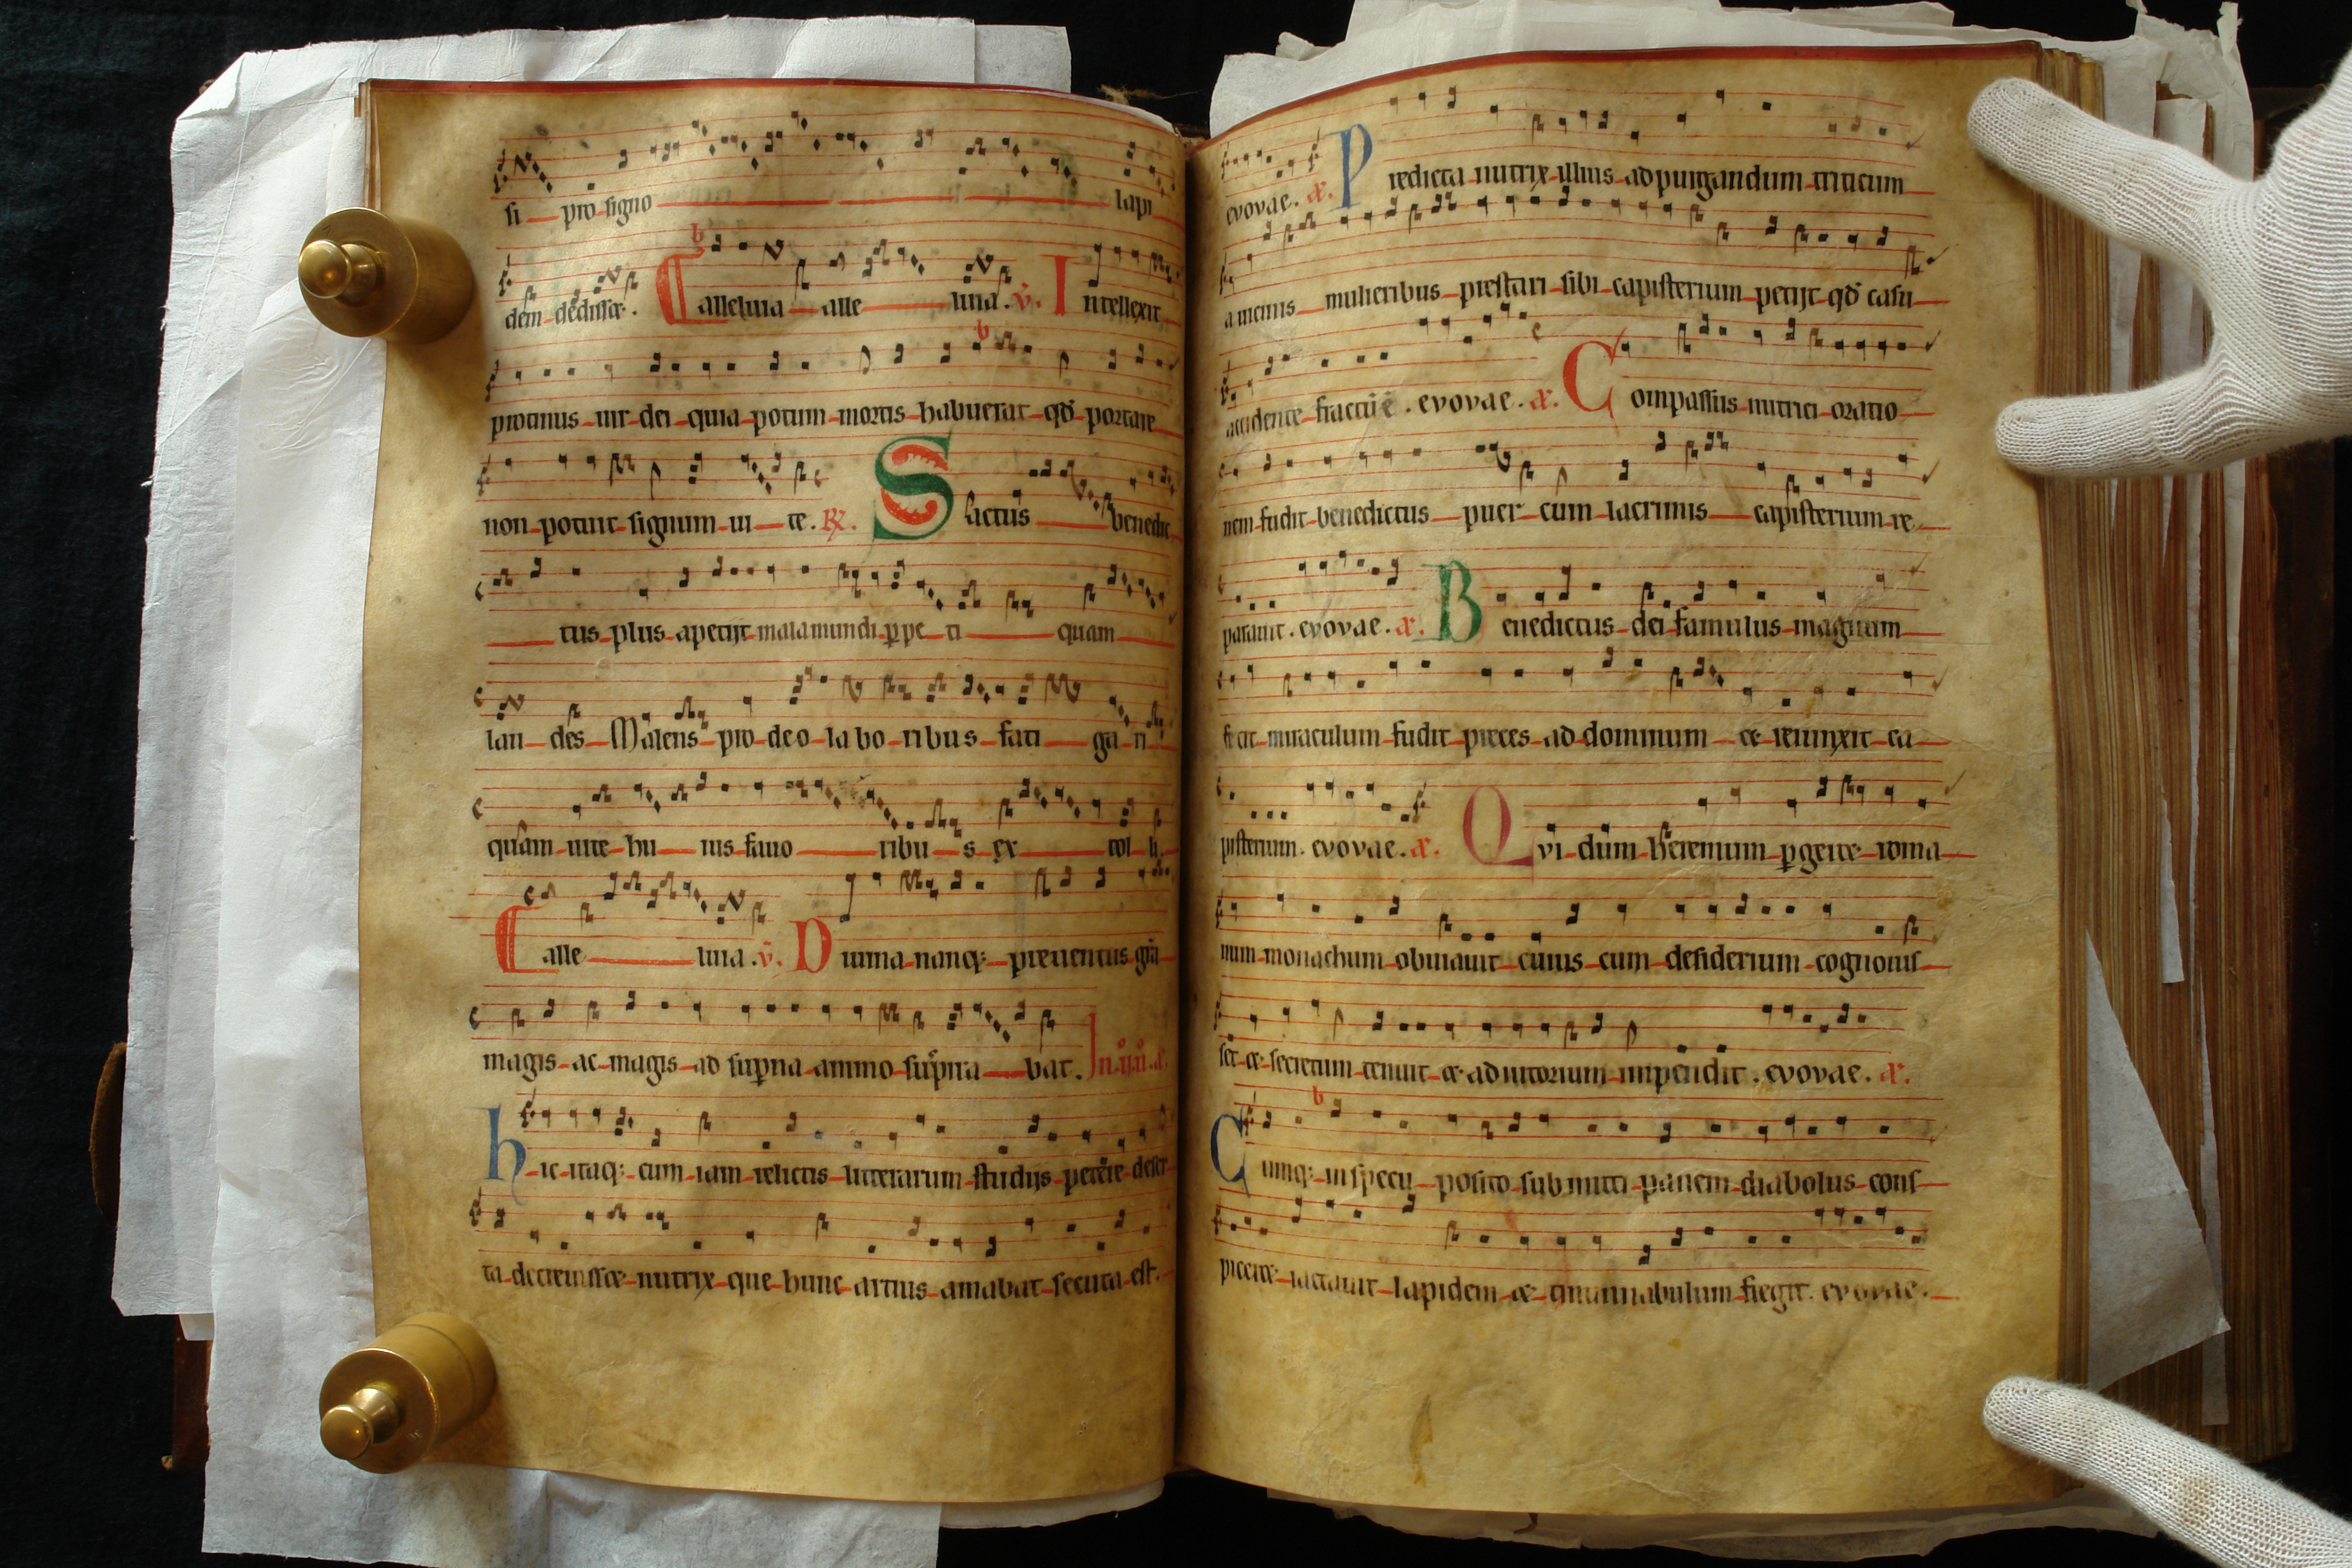 si pro signo lapi
dem dedisse. Ealleluia alle uia. v̄. Intellexit
protinus uir dei quia potum mortis habuerat qd̄ portare
non potuit signum ui te. R̷. Sāctus benedic
tus plus apetijt mala mundi ꝑpe ti quam
lau des Malens pro deo labo ribus fati ga ri
quam uite hu ius fauo ribu s ex tol li
Ealle uia. v̄. Diuina nanq; preuentus grā
magis ac magis ad suꝑna animo suꝑna bat. In .ij. n̊. a̷.
hic itaq; cum iam relictis litterarum studijs petere deser
ta decreuisset nutrix que hunc artius amabat secuta est.
evovae. a̷. Predicta nutrix illius ad purgandum triticum
a uicinis mulieribus prestari sibi capisterium petijt qd̄ casu
accidente fractū ē. evovae. a̷. Compassus nutrici oratio
nem fudit benedictus puer cum lacrimis capisterium re
parauit. evovae. a̷. Benedictus dei famulus magnum
fecit miraculum fudit preces ad dominum et reiunxit ca
pisterium. evovae. a̷. Qui dum heremum ꝑgeret roma
num monachum obuiauit cuius cum desiderium cognouis
set et secretum tenuit et adiutorium impendit. evovae. a̷.
Cumq; in specu posito submitti panem diabolus cons
piceret iactauit lapidem et tintinnabulum fregit. evovae.